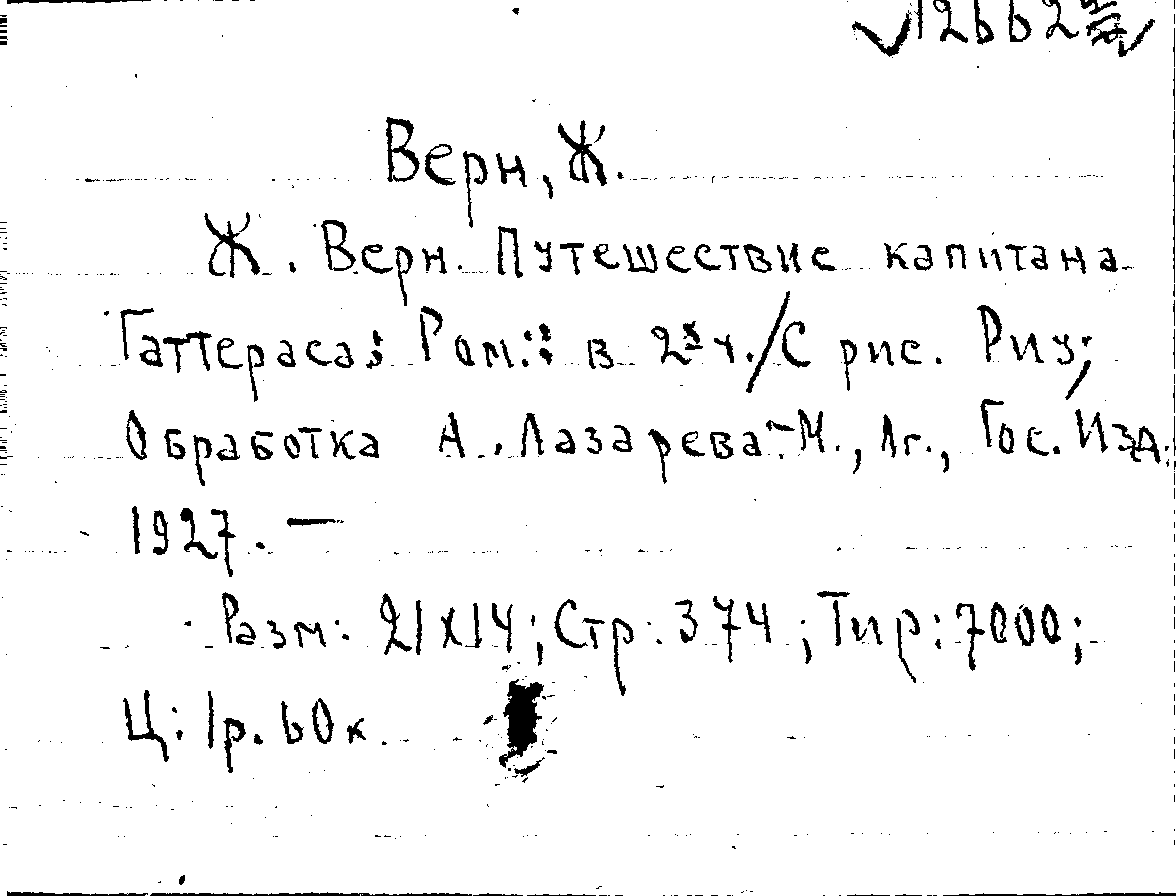 12662
Верн, Ж.
Ж. Верн. Путешествие капитана
Гаттераса: Ром.: в 2х ч./С рис. Риу;
Обработка А. Лазарева.-М., Лг., Гос. Изд.
1927. —
Разм: 21х14; Стр: 374; Тир: 7000;
Ц: 1р. 60к.